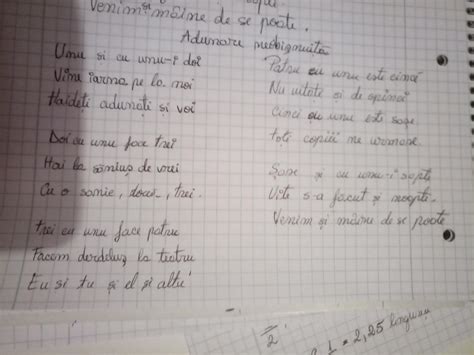 Venim și mâine de se poate.
Adunare neobișnuită
Unu si cu unu-i doi
Vine iarna pe la noi
Haideți adunați si voi
Doi cu unu face trei
Hai la săniuș de vrei
Cu o sanie, două, trei.
trei cu unu face patru
Facem derdeluș la teatru
Eu si tu și el și altu'
Patru cu unu este cinci
Nu uitate si de opinci
Cinci cu unu est sase
toți copiii ne urmase.
Sase și cu unu-i sapte
Uite s-a facut și noapte.
Venim și mâine de se poate
2
1 = 2,25